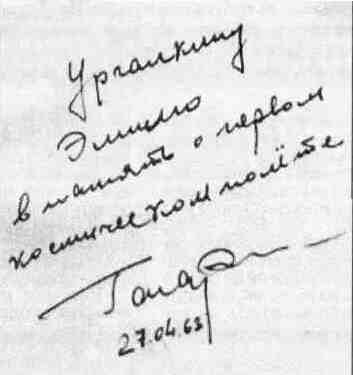 Ургалкину
Эмилю
в память о первом
космическом полёте
Гагарин
27.04.63